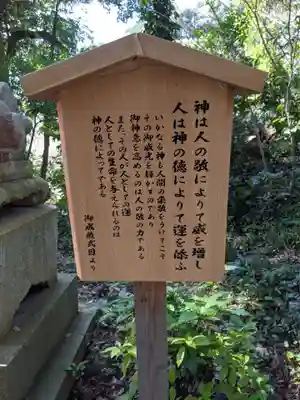 神は人の敬によりて威を増し
人は神の徳によりて運を添ふ
いかなる神も人間の崇敬をうけてこそ
その御威光を輝かすのであり
御神意を高めるのは人の敬の力である
また、その人が人としての運
人としての生命を与えられるのは
神の徳によってである
御成敗式目より